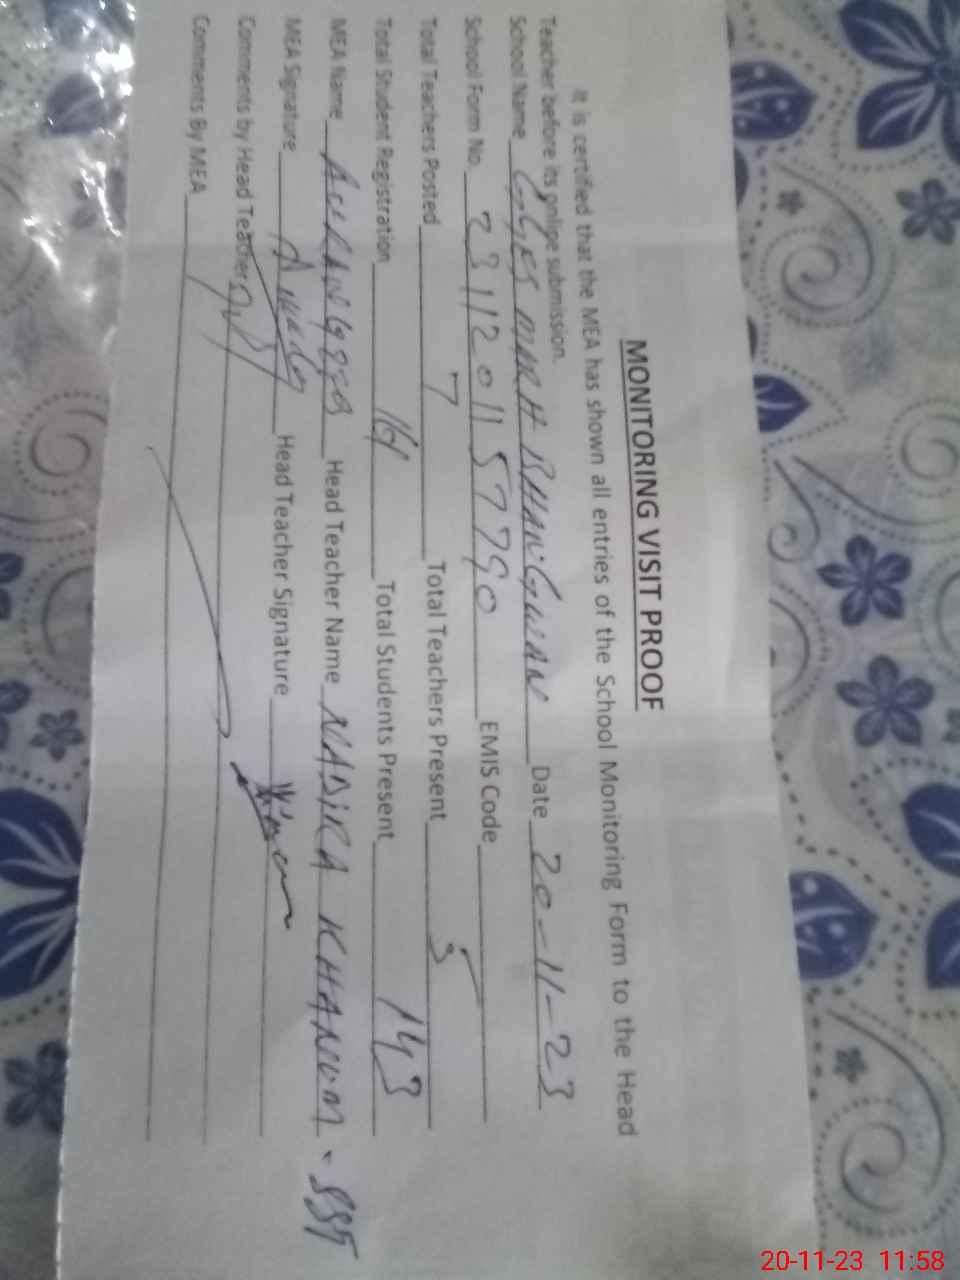 MONITORING VISIT PROOF
It is certified that the MEA has shown all entries of the School Monitoring Form to the Head
Teacher before its online submission.
School Name GGES MARH BHANGWAN Date 20-11-23
School Form No. EMIS Code
Total Teachers Posted 7 Total Teachers Present 5
Total Student Registration 161 Total Students Present 143
MEA Name AURANGZEB Head Teacher Name NADIRA KHANUM - SST
MEA Signature Head Teacher Signature
Comments by Head Teacher
Comments By MEA
20-11-23 11:58